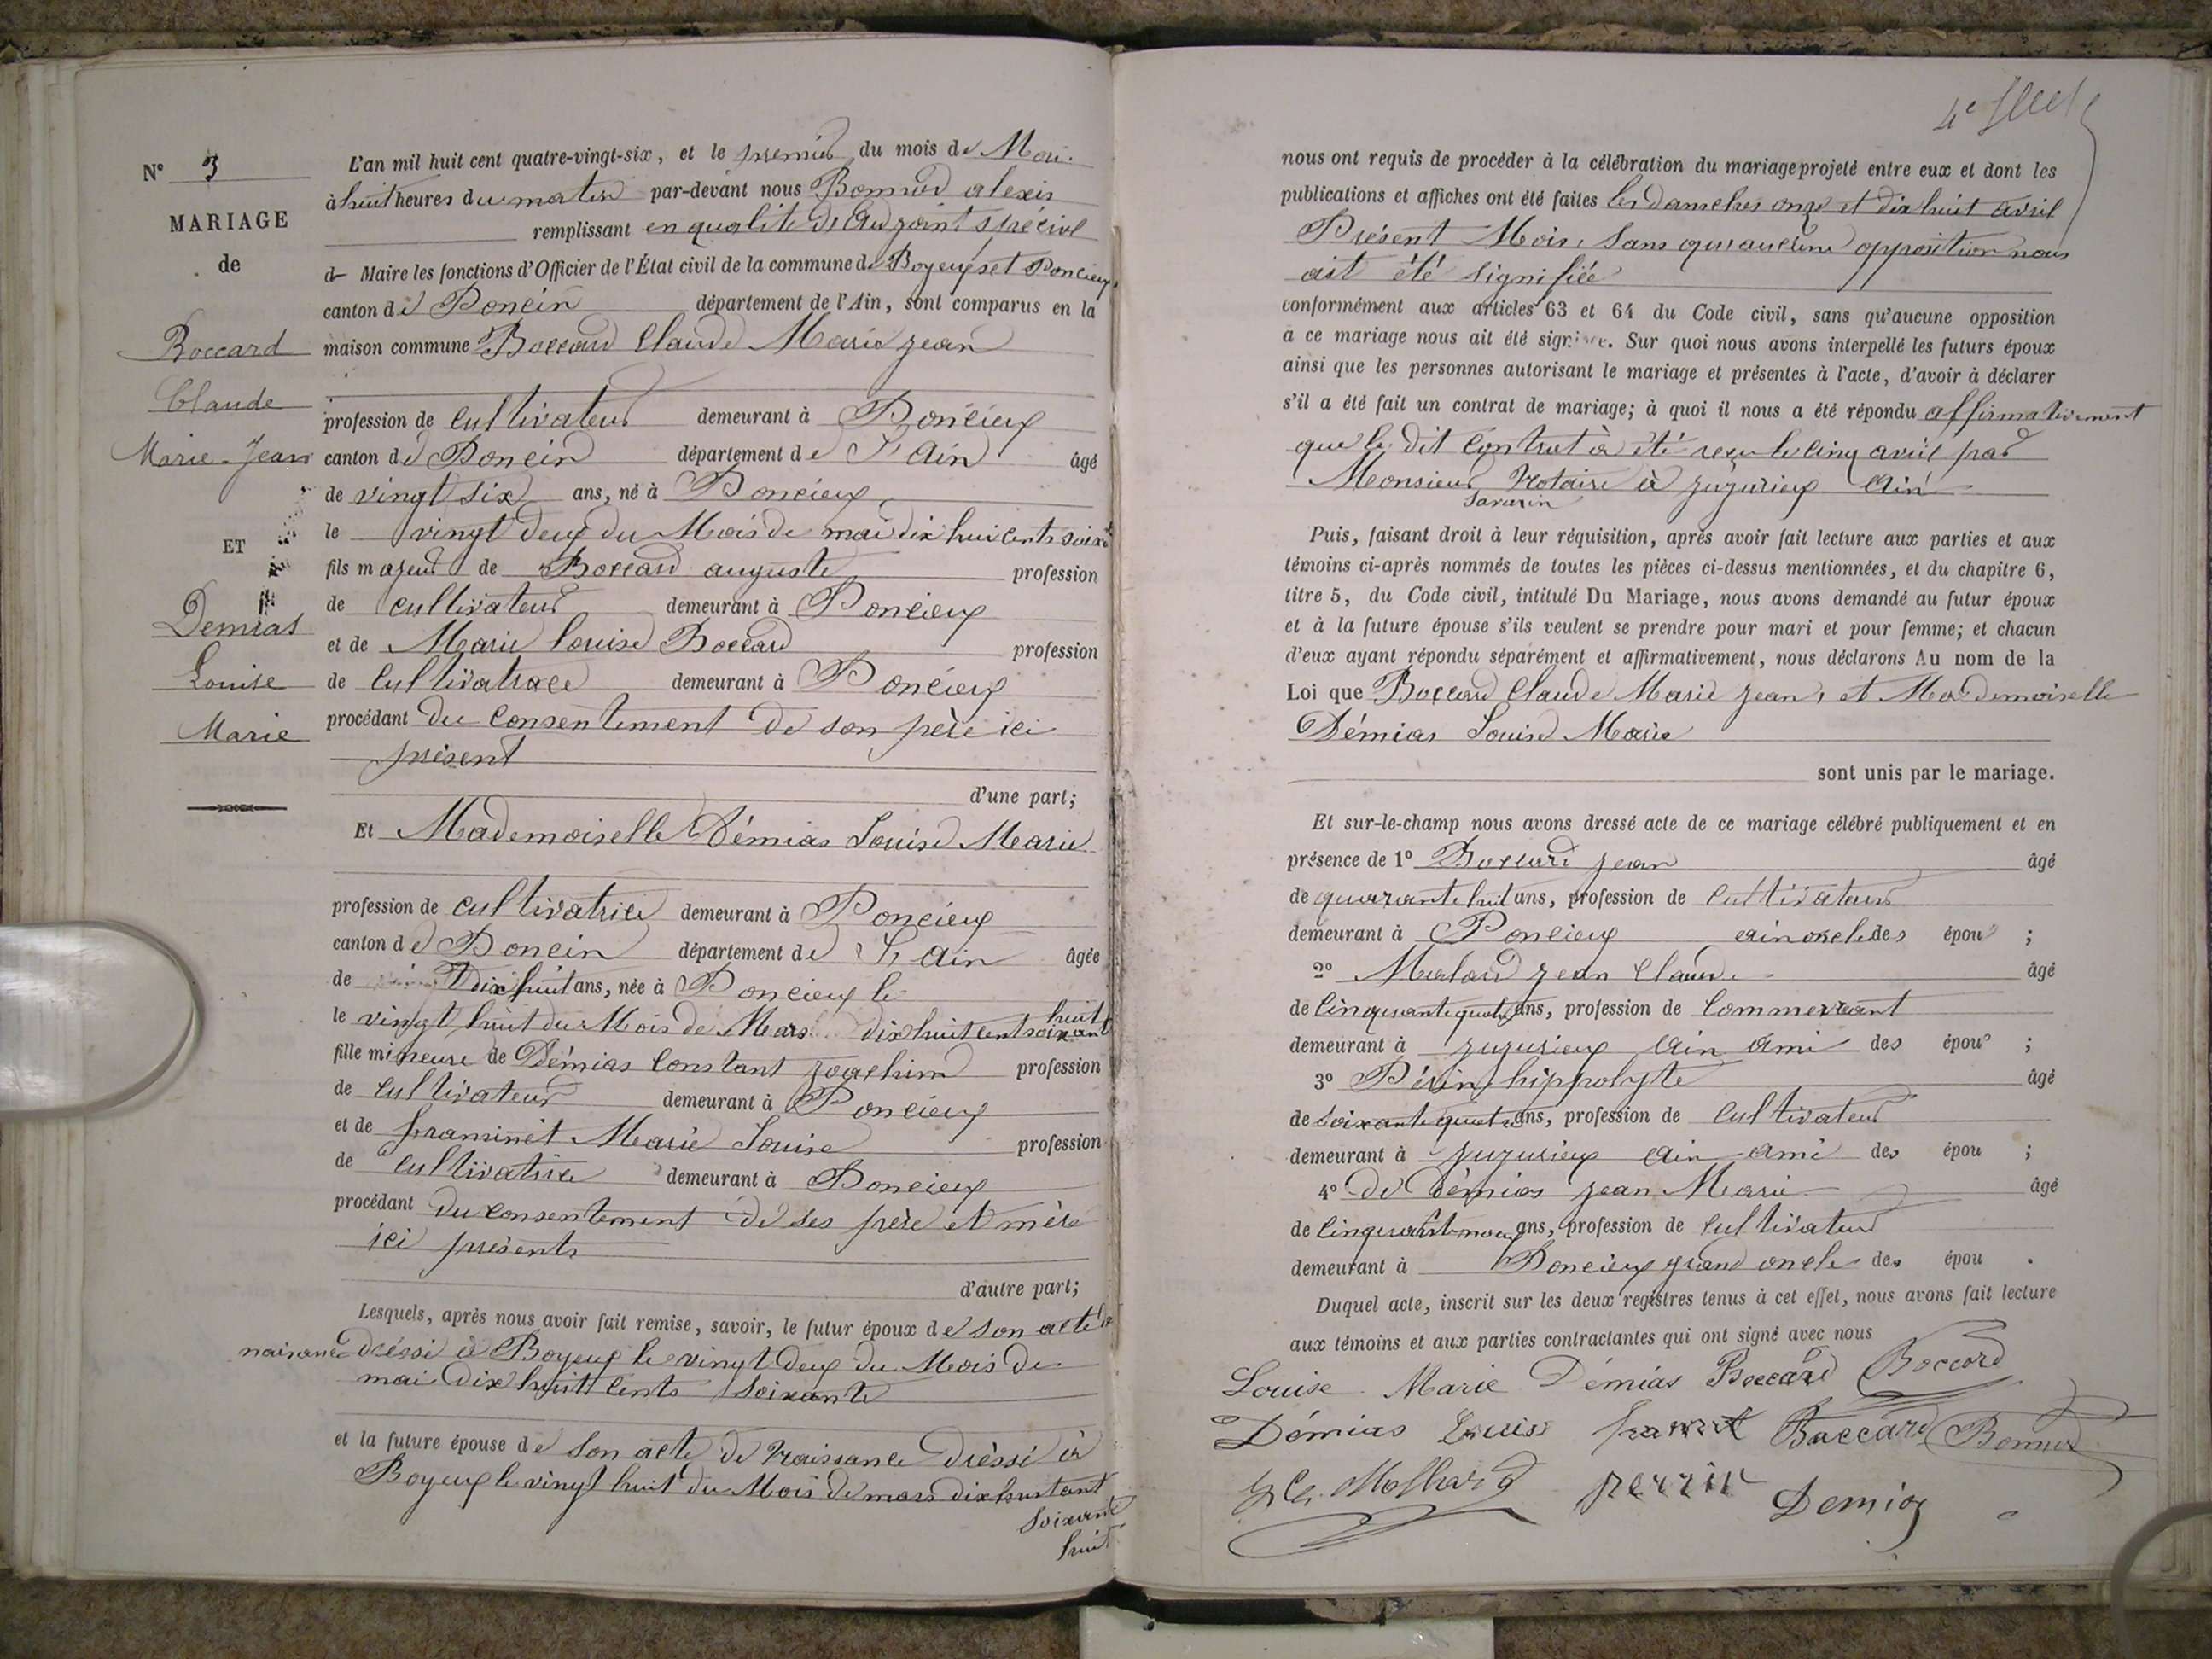 N° 3
MARIAGE
de
Boccard
Claude
Marie-Jean
ET
Demias
Louise
Marie
L'an mil huit cent quatre-vingt-six, et le premier du mois de Mai
à huit heures du matin par-devant nous Bonnod alexis
remplissant en qualité de adjoint spécial
de Maire les fonctions d'Officier de l'État civil de la commune de Boyeux et Poncieux
canton de Poncin département de l'Ain, sont comparus en la
maison commune Boccard Claude Marie jean
profession de cultivateur demeurant à Poncieux
canton de Poncin département de L'ain âgé
de vingt six ans, né à Poncieux
le vingt deux du Mois de mai dix huit cents soixte
fils majeur de Boccard auguste profession
de cultivateur demeurant à Poncieux
et de Marie louise Boccard profession
de cultivatrice demeurant à Poncieux
procédant du consentement de son père ici
présent
d'une part;
Et Mademoiselle Démias Louise Marie
profession de cultivatrice demeurant à Poncieux
canton de Poncin département de L'ain âgée
de dix huit ans, née à Poncieux le
le vingt huit du Mois de Mars dix huit cent soixant huit
fille mineure de Démias Constant joachim profession
de cultivateur demeurant à Poncieux
et de framinet Marie Louise profession
de cultivatrice demeurant à Poncieux
procédant du consentement de ses père et mère
ici présents
d'autre part;
Lesquels, après nous avoir fait remise, savoir, le futur époux de son acte de
naisance dréssé à Boyeux le vingt deux du Mois de
mai dix huit cents soixante
et la future épouse de son acte de Naissance dréssé à
Boyeux le vingt huit du Mois de mars dix huit cent
soixante
huit
nous ont requis de procéder à la célébration du mariage projeté entre eux et dont les
publications et affiches ont été faites les dimanches onze et dix huit avril
Présent Mois, sans qu'aucune opposition nous
ait été signifiée
conformément aux articles 63 et 64 du Code civil, sans qu'aucune opposition
à ce mariage nous ait été signifiée. Sur quoi nous avons interpellé les futurs époux
ainsi que les personnes autorisant le mariage et présentes à l'acte, d'avoir à déclarer
s'il a été fait un contrat de mariage; à quoi il nous a été répondu affirmativement
que le dit contrat à été reçu le cinq avril par
Monsieur Notaire à jujurieux Ain
Savarin
Puis, faisant droit à leur réquisition, après avoir fait lecture aux parties et aux
témoins ci-après nommés de toutes les pièces ci-dessus mentionnées, et du chapitre 6,
titre 5, du Code civil, intitulé Du Mariage, nous avons demandé au futur époux
et à la future épouse s'ils veulent se prendre pour mari et pour femme; et chacun
d'eux ayant répondu séparément et affirmativement, nous déclarons Au nom de la
Loi que Boccard Claude Marie jean, et Mademoiselle
Démias Louise Marie
sont unis par le mariage.
Et sur-le-champ nous avons dressé acte de ce mariage célébré publiquement et en
présence de 1° Boccard jean âgé
de quarante huit ans, profession de cultivateur
demeurant à Poncieux ain oncle des époux ;
2° jean Claude âgé
de cinquante quatre ans, profession de commercant
demeurant à jujurieux Ain ami des époux ;
3° hippolyte âgé
de soixante quatre ans, profession de cultivateur
demeurant à jujurieux Ain ami des épou ;
4° de Démias jean Marie âgé
de cinquante neuf ans, profession de cultivateur
demeurant à Poncieux grand oncle des épou .
Duquel acte, inscrit sur les deux registres tenus à cet effet, nous avons fait lecture
aux témoins et aux parties contractantes qui ont signé avec nous
Louise Marie Démias Boccard Boccard
Démias Louise Baccard Bonnod
perrin Demias